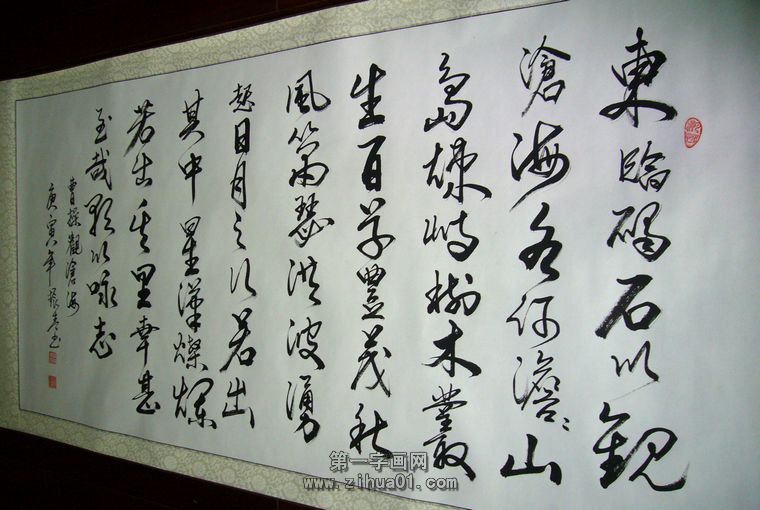 東臨碣石以觀
滄海水何澹々山
島竦峙樹木叢
生百草豐茂秋
風蕭瑟洪波湧
起日月之行若出
其中星漢燦爛
若出其里幸甚
至哉歌以咏志
曹操觀滄海
庚寅年振书
第一字画网
www.zihua01.com